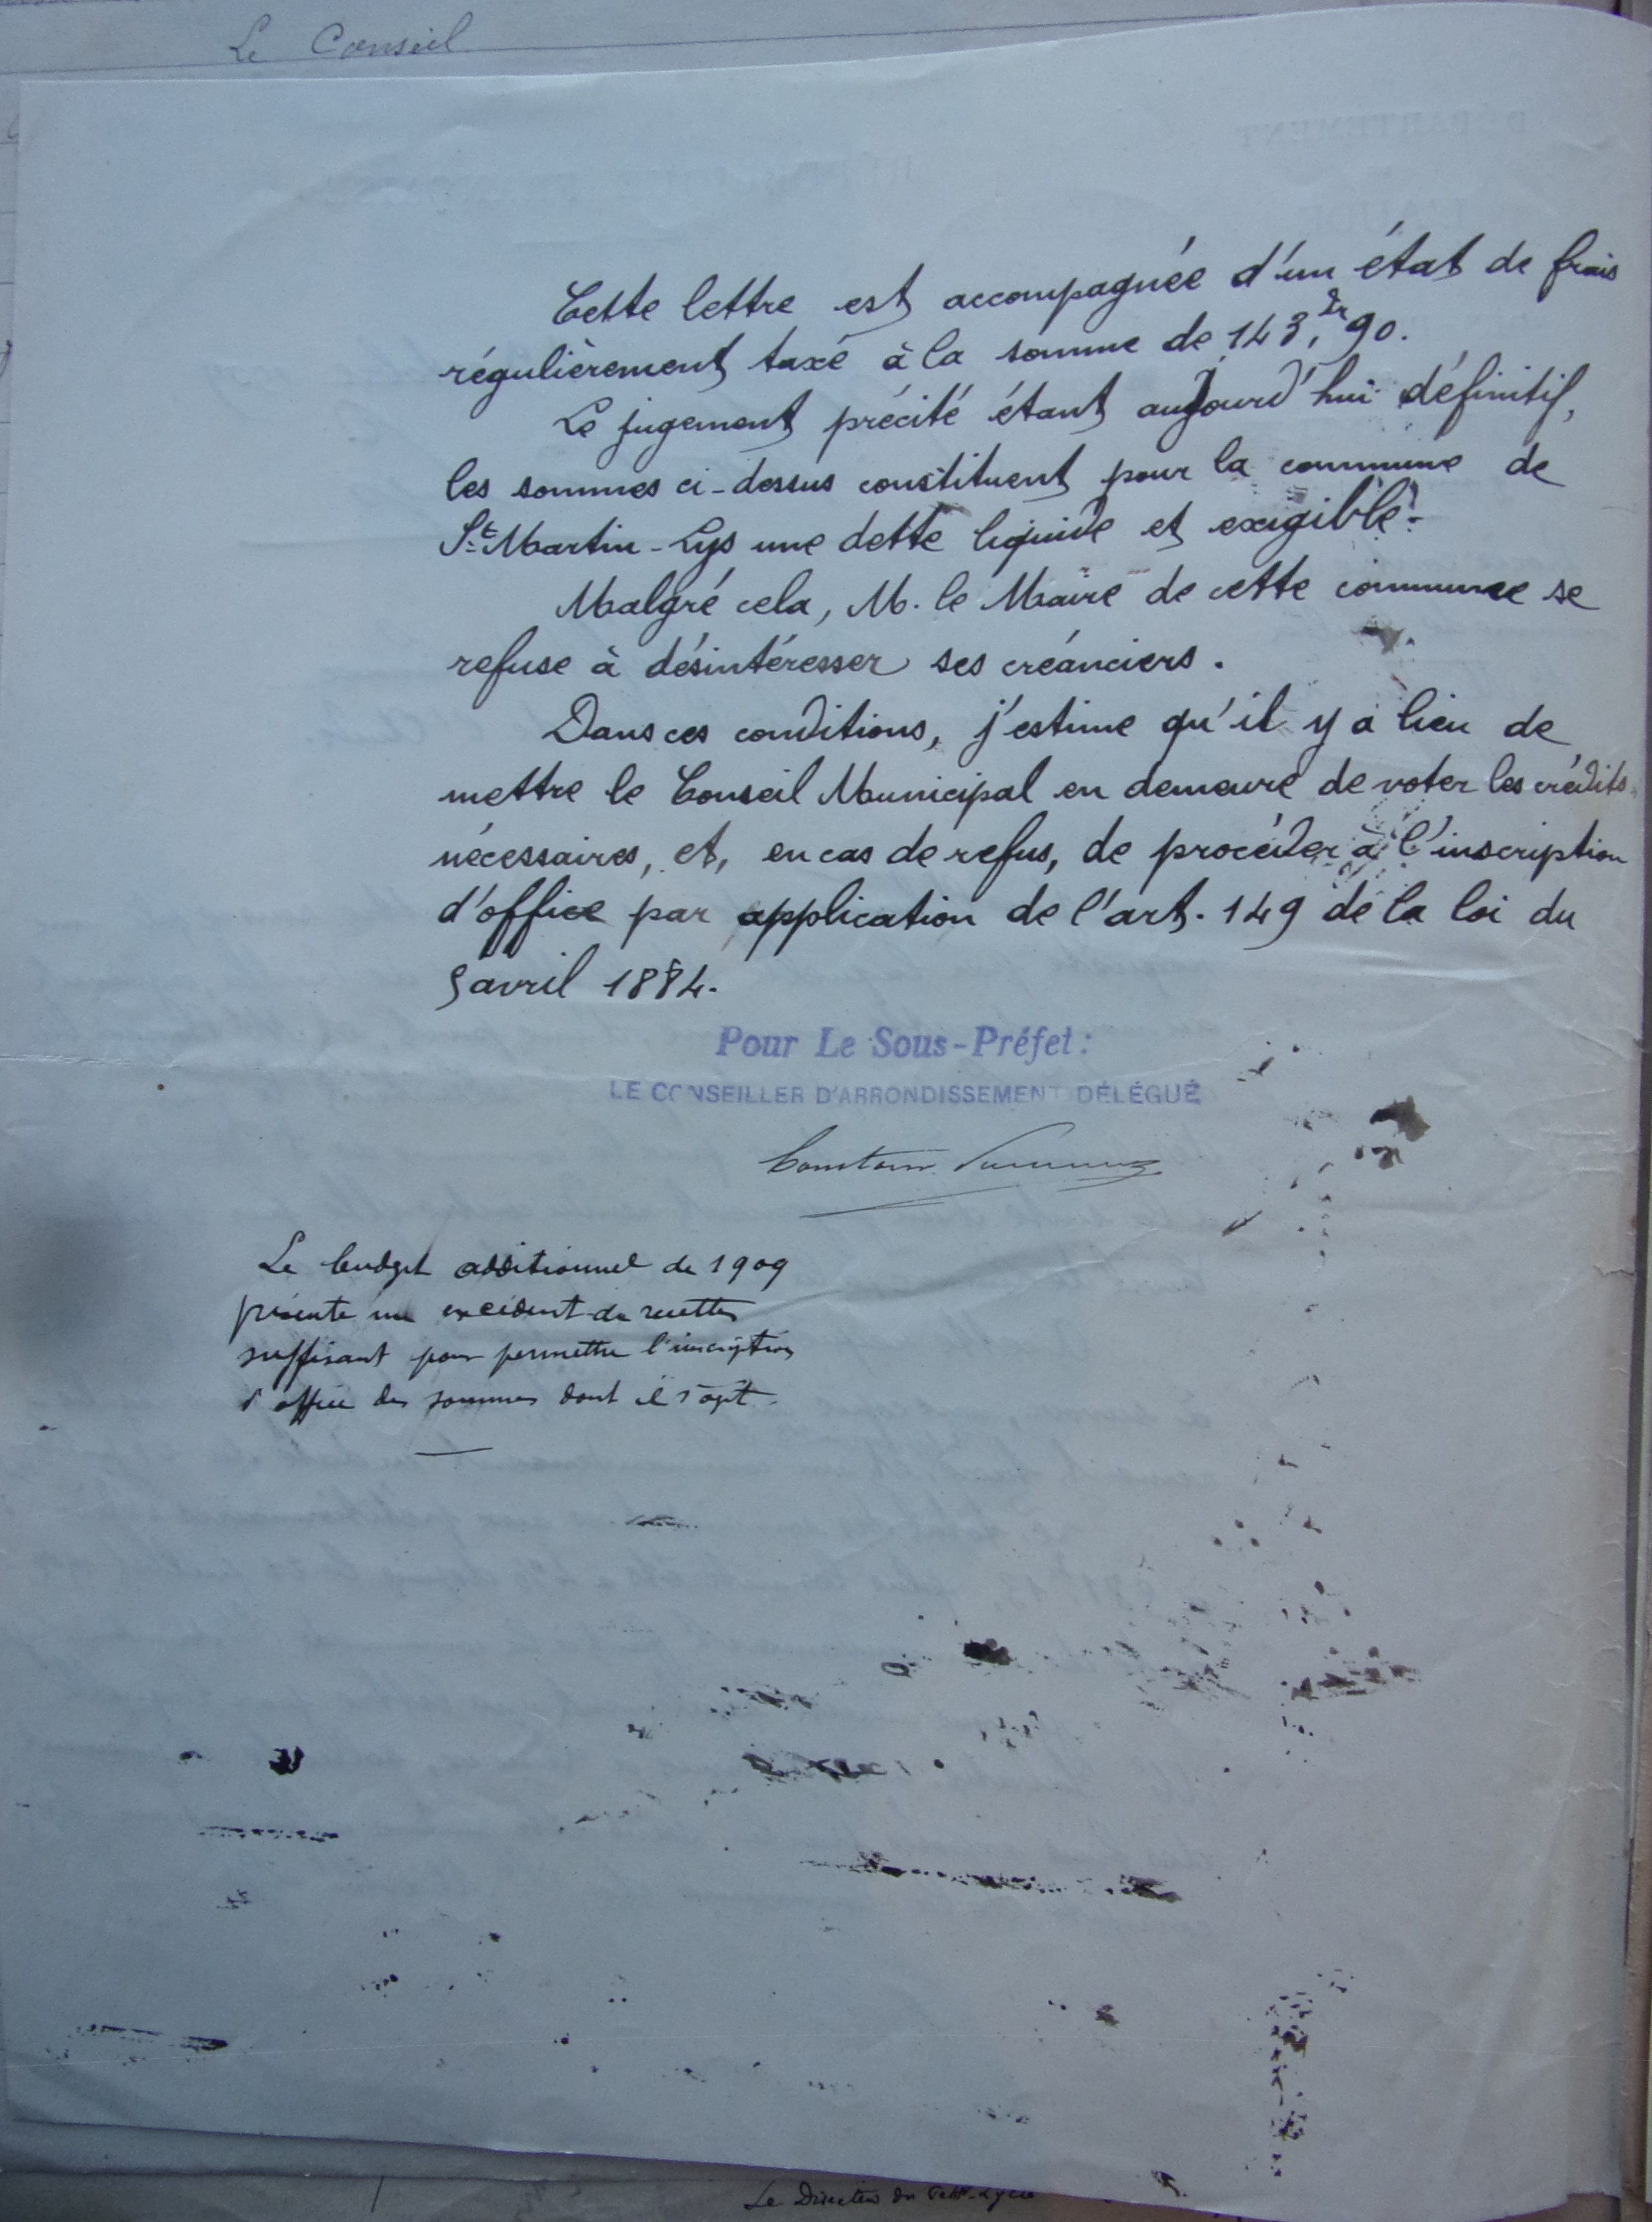 Le Conseil
Cette lettre est accompagnée d'un état de frais
régulièrement taxé à la somme de 143,fr90.
Le jugement précité étant aujourd'hui définitif,
les sommes ci-dessus constituent pour la commune de
St Martin-Lys une dette liquide et exigible.
Malgré cela, M. le Maire de cette commune se
refuse à désintéresser ses créanciers.
Dans ces conditions, j'estime qu'il y a lieu de
mettre le Conseil Municipal en demeure de voter les crédits
nécessaires, et, en cas de refus, de procéder à l'inscription
d'office par application de l'art. 149 de la loi du
5 avril 1884.
Pour Le Sous-Préfet:
LE CONSEILLER D'ARRONDISSEMENT DÉLÉGUÉ
Le budget additionnel de 1909
présente un excédent de recettes
suffisant pour permettre l'inscription
d'office des sommes dont il s'agit.
Le Directeur du Petit-Lycée